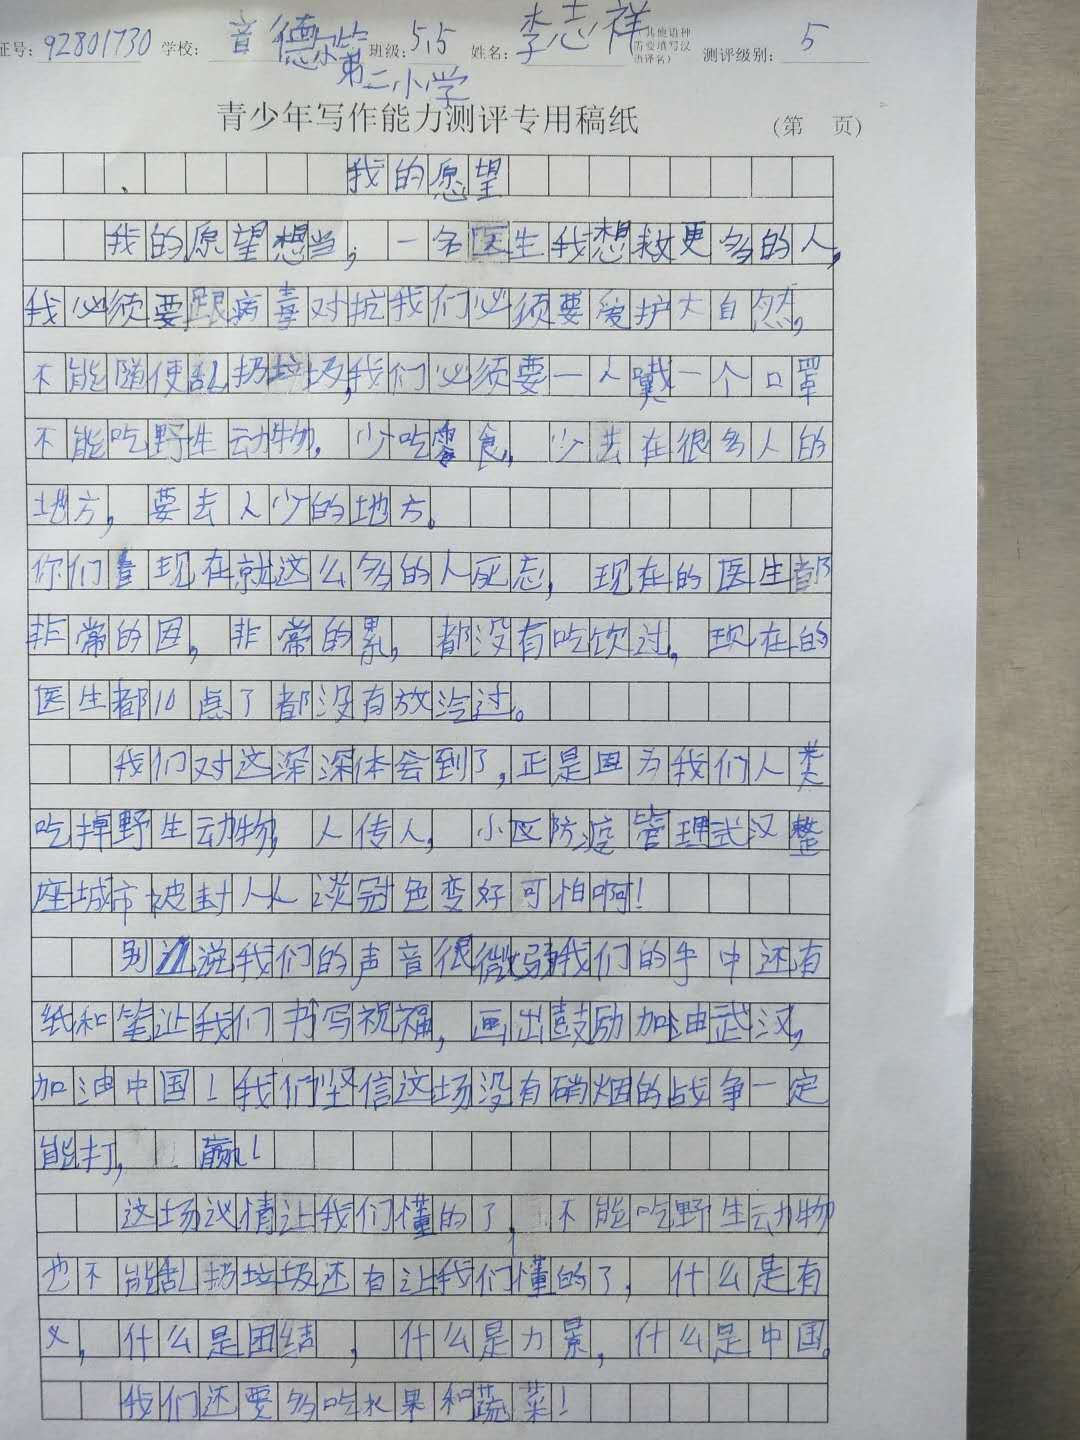 证号: 92801730 学校: 音德 第二小学 班级: 5,5 姓名: 李志祥 其他语种需要填写汉语译名) 测评级别: 5
青少年写作能力测评专用稿纸
(第 页)
我的愿望
我的愿望想当，一名医生我想救更多的人，
我必须要跟病毒对抗我们必须要爱护大自然，
不能随便乱扔垃圾，我们必须要一人戴一个口罩
不能吃野生动物，少吃零食，少去在很多人的
地方，要去人少的地方。
你们看现在就这么多的人死亡，现在的医生都
非常的困，非常的累，都没有吃饮过，现在的
医生都10点了都没有放松过。
我们对这深深体会到了，正是因为我们人类
吃掉野生动物，人传人，小区防疫管理武汉整
座城市被封人人谈冠色变好可怕啊！
别说我们的声音很微弱我们的手中还有
纸和笔让我们书写祝福，画出鼓励加油武汉，
加油中国！我们坚信这场没有硝烟的战争一定
能打，赢！
这场议情让我们懂的了，不能吃野生动物
也不能乱扔垃圾还有让我们懂的了，什么是有
义，什么是团结，什么是力景，什么是中国。
我们还要多吃水果和蔬菜！